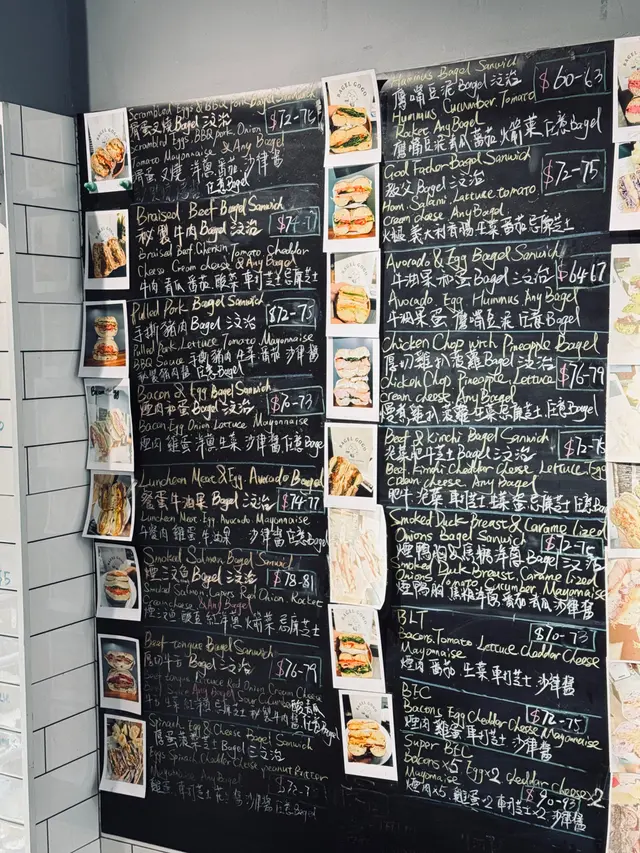 Scrambled Eggs & BBQ Pork Bagel Sanwich
滑蛋叉燒 Bagel 文治
Scrambled Eggs, BBQ pork, Onion
Tomato Mayonnaise & Any Bagel
滑蛋 叉燒 洋蔥 番茄 沙律醬
任意Bagel
Braised Beef Bagel Sanwich
秘製牛肉 Bagel 文治
Braised Beef, Gherkin, Tomato, Cheddar
Cheese Cream cheese & Any Bagel
牛肉 青瓜 番茄 酸菜 車打芝士 忌廉芝士
Pulled Pork Bagel Sanwich
$72-75
手撕豬肉 Bagel 文治
Pulled Pork, Lettuce Tomato Mayonnaise
BBQ Sauce 手撕豬肉 生菜 番茄 沙律醬
任意Bagel
Bacon & Egg Bagel Sanwich
煙肉和蛋 Bagel 文治
$70-73
Bacon Egg Onion Lettuce Mayonnaise
煙肉 雞蛋 洋蔥 生菜 沙律醬 任意Bagel
Luncheon Meat & Egg, Avocado Bagel
餐蛋牛油果 Bagel 文治
$74-77
Luncheon Meat Egg Avocado Mayonnaise
午餐肉 雞蛋 牛油果 沙律醬 任意Bagel
Smoked Salmon Bagel Sanwich
煙三文魚 Bagel 文治
$78-81
Smoked Salmon, Capers Red Onion, Rocket
Cream cheese & Any Bagel
煙三文魚 酸豆 紅洋蔥 火箭菜 忌廉芝士
Beef tongue Bagel Sanwich
厚切牛舌 Bagel 文治
$76-79
Beef tongue Lettuce Red Onion Cream Cheese
Spinach Egg & Cheese Bagel Sanwich
滑蛋菠菜芝士 Bagel 文治
Eggs Spinach Cheddar Cheese peanut Butter
Mayonnaise Any Bagel
Hummus Bagel Sanwich
鷹嘴豆泥 Bagel 文治
$60-63
Hummus Cucumber Tomato
Rocket Any Bagel
鷹嘴豆泥 青瓜 番茄 火箭菜 任意Bagel
God Father Bagel Sanwich
教父 Bagel 文治
$72-75
Ham, Salami, Lettuce, tomato,
Cream cheese Any Bagel
火腿 義大利香腸 生菜 番茄 忌廉芝士
Avocado & Egg Bagel Sanwich
牛油果和蛋 Bagel 文治
$64-67
Avocado, Egg, Hummus Any Bagel
牛油果 蛋 鷹嘴豆泥 任意Bagel
Chicken Chop with Pineapple Bagel
厚切雞扒菠蘿 Bagel 文治
$76-79
Chicken Chop Pineapple Lettuce
cream cheese Any Bagel
雞扒 菠蘿 生菜 忌廉芝士 任意Bagel
Beef & Kimchi Bagel Sanwich
泡菜肥牛 Bagel 文治
$72-75
Beef, Kimchi Cheddar Cheese Lettuce Egg
Cream cheese Any Bagel
肥牛 泡菜 車打芝士 生菜 蛋 忌廉芝士 任意Bagel
Smoked Duck Breast & Caramelized
Onions Bagel Sanwich
$72-75
煙鴨胸&焦糖洋蔥 Bagel 文治
Smoked Duck Breast, Caramelized
Onions Tomato Cucumber Mayonnaise
煙鴨胸 焦糖洋蔥 番茄 青瓜 沙律醬
BLT
$70-73
Bacons, Tomato Lettuce Cheddar Cheese
Mayonnaise
煙肉 番茄 生菜 車打芝士 沙律醬
BEC
$72-75
Bacons, Egg Cheddar Cheese, Mayonnaise
煙肉 雞蛋 車打芝士 沙律醬
Super BEC
Bacons×5 Egg×2 cheddar cheese×2
Mayonnaise
$90-93
煙肉×5 雞蛋×2 車打芝士×2 沙律醬